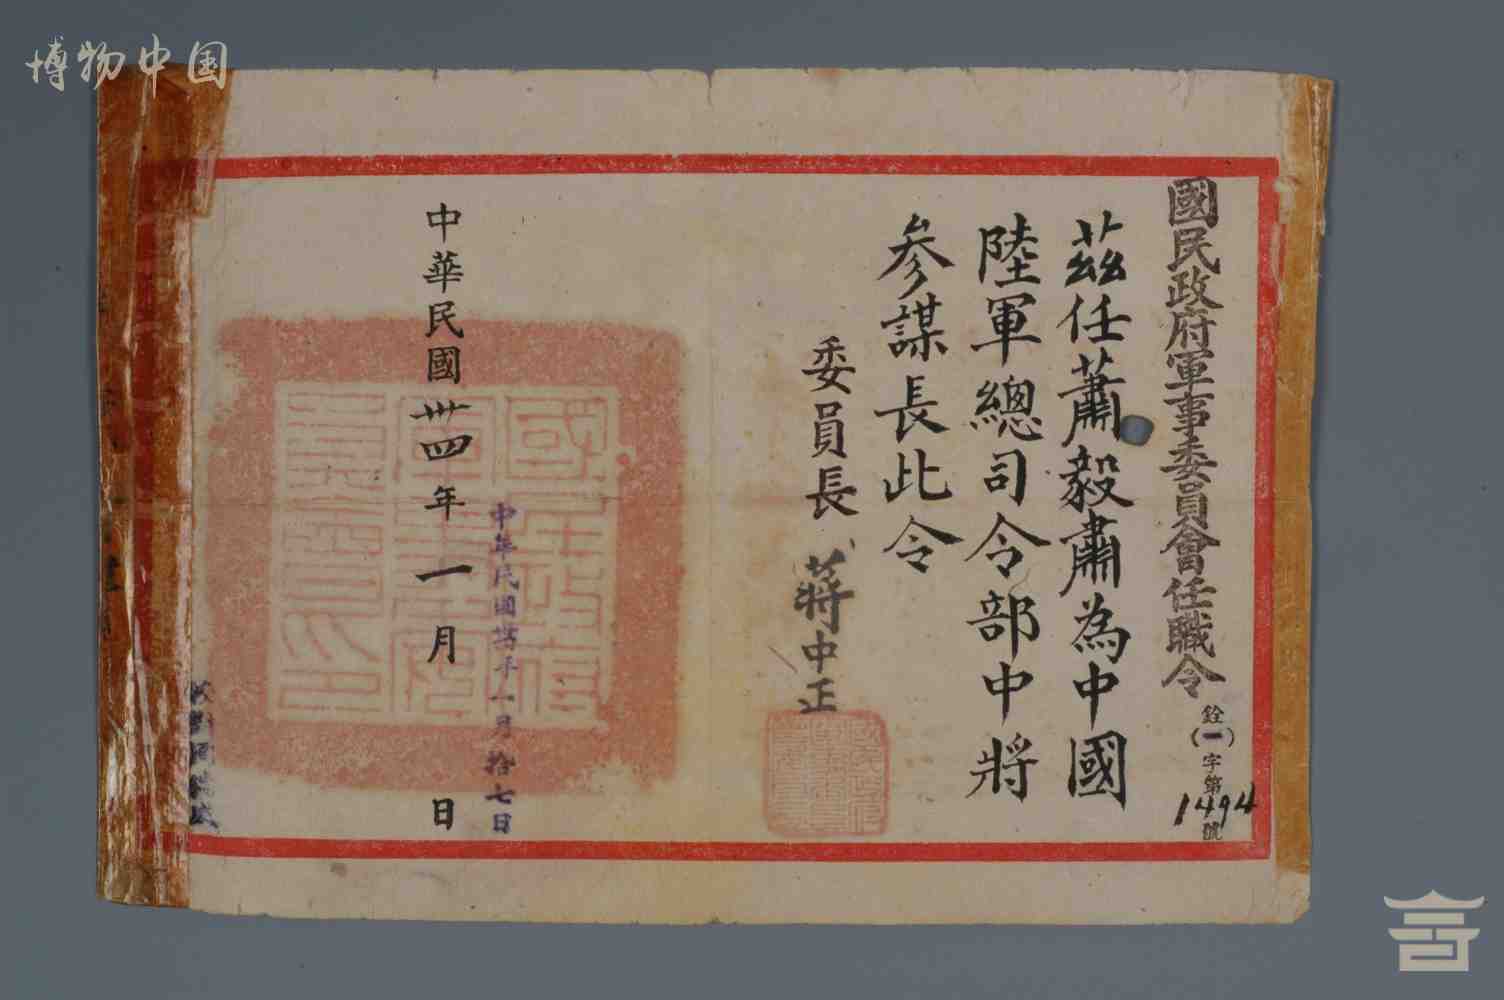 博物中国
國民政府軍事委員會任職令
銓(一)字第1494號
茲任蕭毅肅為中國
陸軍總司令部中將
參謀長此令
委員長 蔣中正
中華民國卅四年一月 日
國民政府軍事委員會印